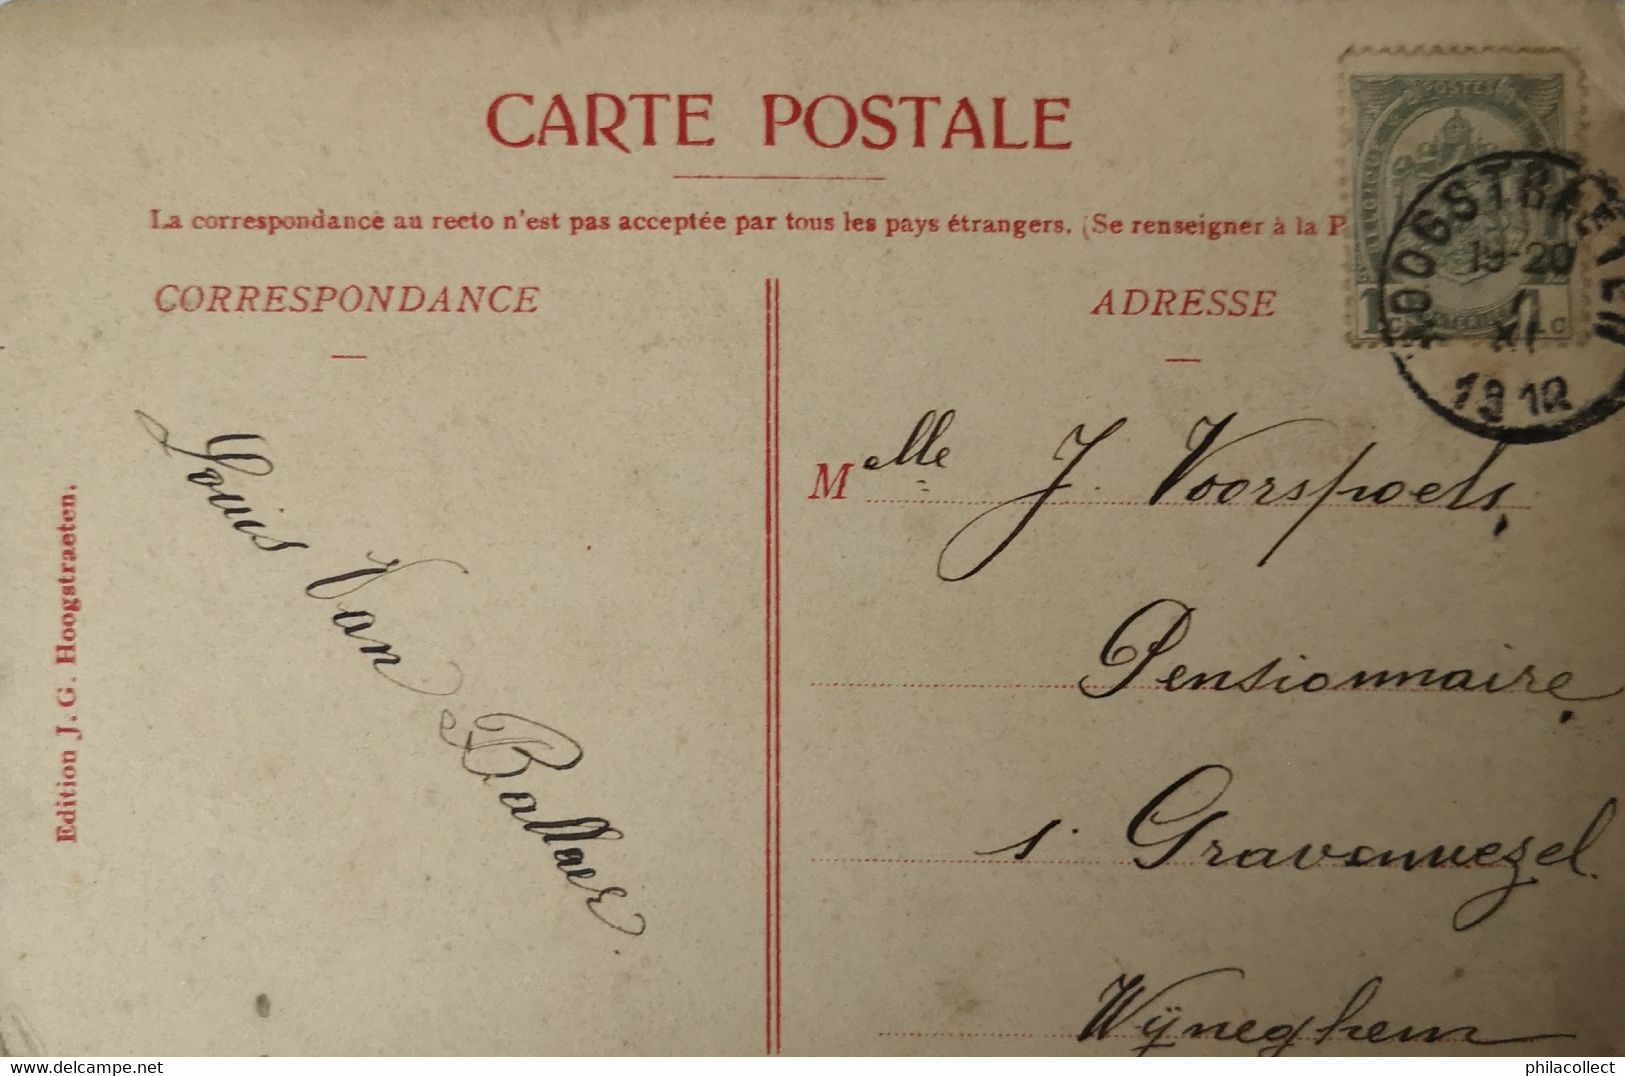 CARTE POSTALE
La correspondance au recto n'est pas acceptée par tous les pays étrangers. (Se renseigner à la P
CORRESPONDANCE
ADRESSE
POSTES
BELGIQUE
1 C
1 C
HOOGSTRAETEN
19-20
XI
1912
Louis Van Ballaer.
Melle J. Voorspoels,
Pensionnaire,
s. Gravenwezel.
Wÿneghem
Edition J. G. Hoogstraeten.
philacollect